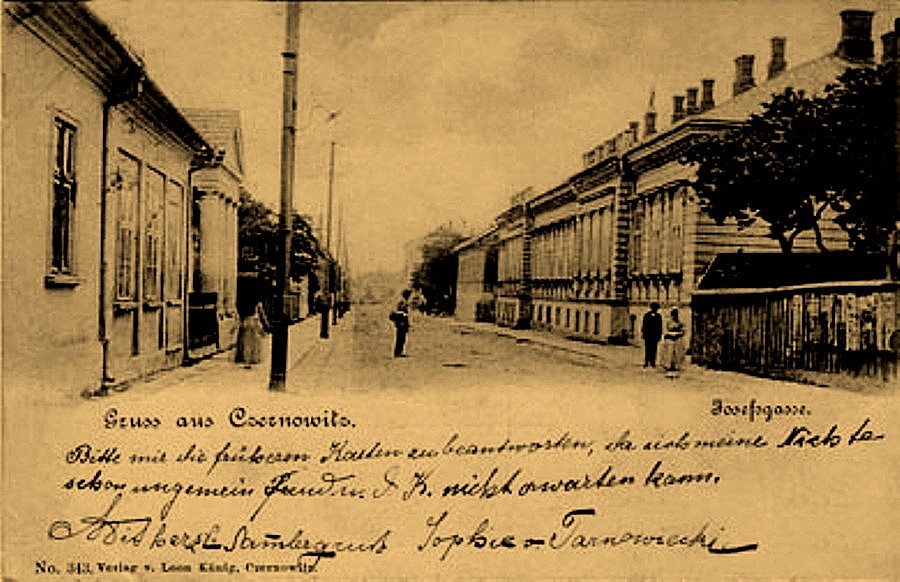 Gruss aus Czernowitz.
Josefsgasse.
Bitte mir die früheren Karten zu beantworten, da sich meine
schon ungemein nicht erwarten kann.
Sophie v. Tarnowiecki
No. 343. Verlag v. Leon König, Czernowitz.